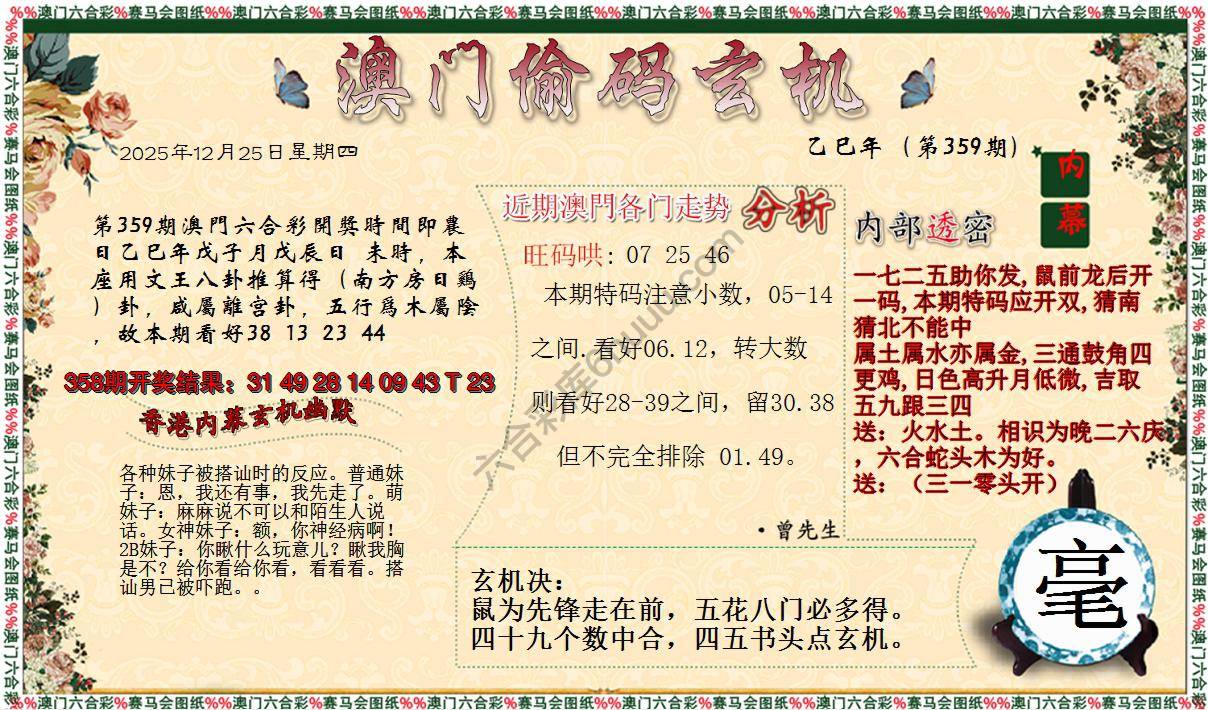 %%澳门六合彩%赛马会图纸%%澳门六合彩%赛马会图纸%%澳门六合彩%赛马会图纸%%澳门六合彩%赛马会图纸%%澳门六合彩%赛马会图纸%%澳门六合彩%赛马会图纸%%
澳门偷码玄机
2025年12月25日星期四
乙巳年（第359期）
内幕
第359期澳門六合彩開獎時間即農
日乙巳年戊子月戊辰日 未時，本
座用文王八卦推算得（南方房日鷄
）卦，咸屬離宫卦，五行爲木屬陰
，故本期看好38 13 23 44
358期开奖结果：31 49 28 14 09 43 T 23
香港内幕玄机幽默
各种妹子被搭讪时的反应。普通妹
子：恩，我还有事，我先走了。萌
妹子：麻麻说不可以和陌生人说
话。女神妹子：额，你神经病啊！
2B妹子：你瞅什么玩意儿？瞅我胸
是不？给你看给你看，看看看。搭
讪男已被吓跑。。
近期澳門各门走势 分析
旺码哄: 07 25 46
本期特码注意小数，05-14
之间.看好06.12，转大数
则看好28-39之间，留30.38
但不完全排除 01.49。
·曾先生
内部透密
一七二五助你发,鼠前龙后开
一码,本期特码应开双,猜南
猜北不能中
属土属水亦属金,三通鼓角四
更鸡,日色高升月低微,吉取
五九跟三四
送：火水土。相识为晚二六庆
，六合蛇头木为好。
送：（三一零头开）
玄机决：
鼠为先锋走在前，五花八门必多得。
四十九个数中合，四五书头点玄机。
毫
%%澳门六合彩%赛马会图纸%%澳门六合彩%赛马会图纸%%澳门六合彩%赛马会图纸%%澳门六合彩%赛马会图纸%%澳门六合彩%赛马会图纸%%澳门六合彩%赛马会图纸%%